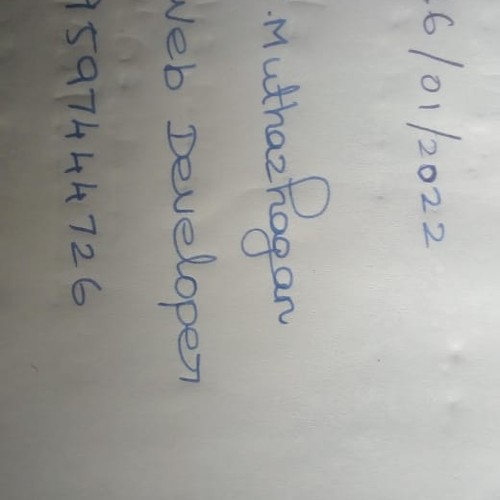 6/01/2022
.Muthazhagan
Web Developer
9597444726